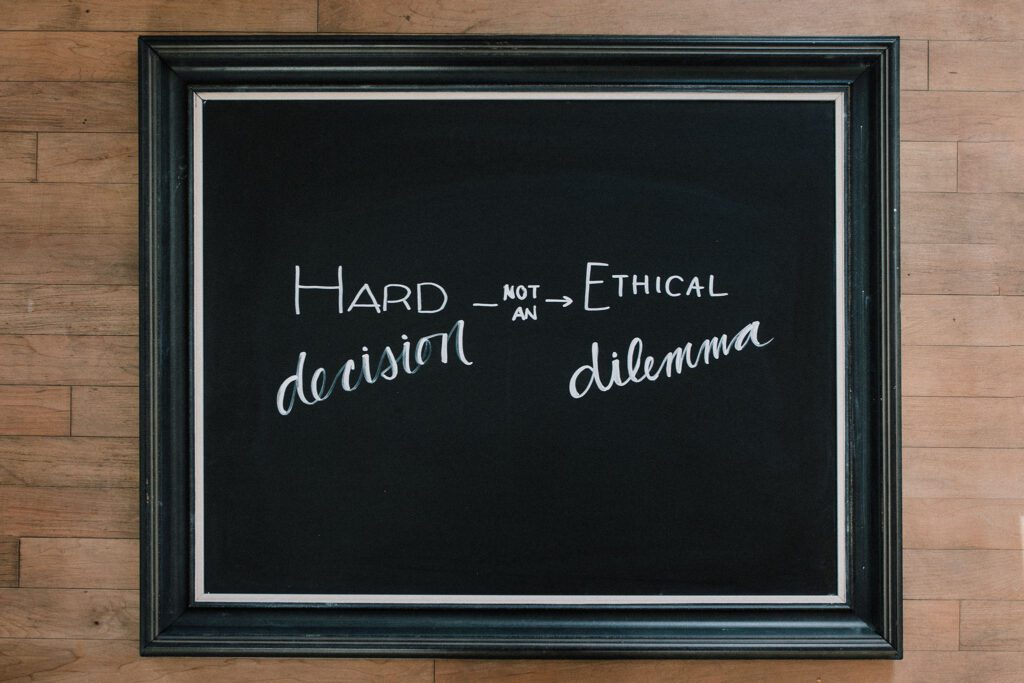 HARD — NOT AN → ETHICAL
decision dilemma